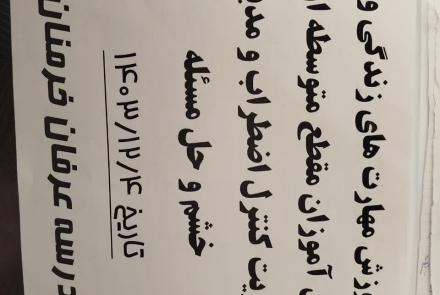 زش مهارت های زندگی و
آموزان مقطع متوسطه
یت کنترل اضطراب و مدی
خشم و حل مسئله
تاریخ ۱۴۰۳/۱۲/۰۴
درسه عرفان خرمنان